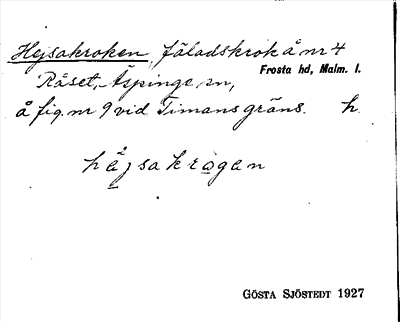 Hejsakroken, fäladskrok å nr 4
Frosta hd, Malm. l.
Råset, Äspinge sn,
å fig. nr 9 vid Timans gräns. h.
häjsakrogan
GÖSTA SJÖSTEDT 1927